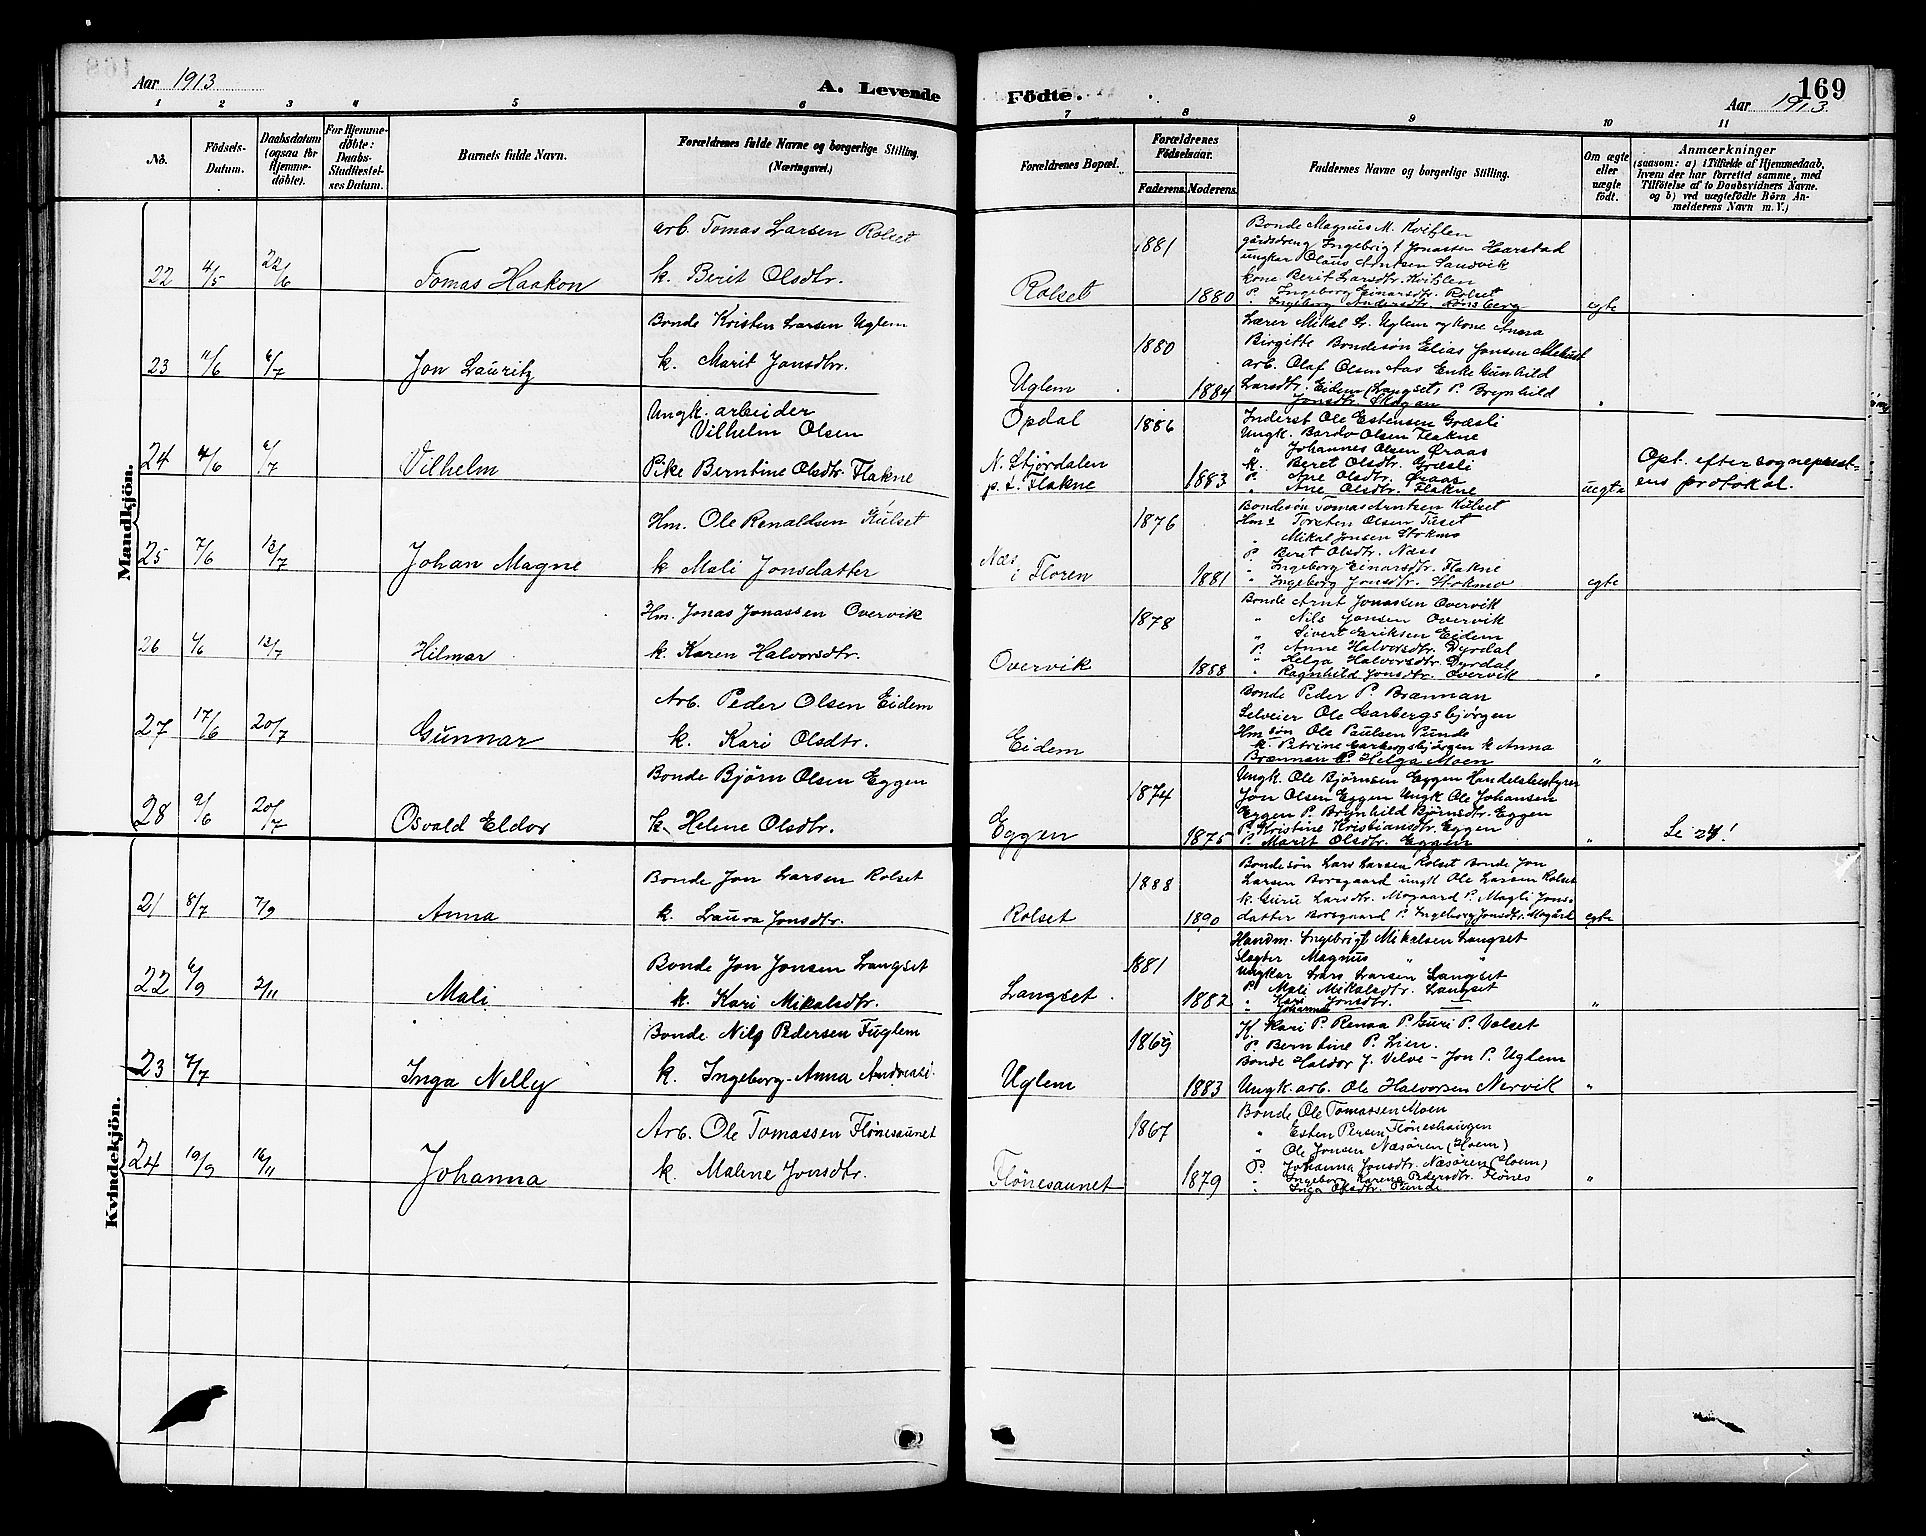 Aar 1913
A. Levende
Födte.
169
Aar 1913.
1 2 3 4 5 6 7 8 9 10 11
No.
Födsels-Datum.
Daabsdatum (ogsaa för Hjemme-döbte).
For Hjemme-döbte: Daabs-Stadfæstel-ses Datum.
Barnets fulde Navn.
Forældrenes fulde Navne og borgerlige Stilling.
(Næringsvei.)
Forældrenes Bopæl.
Forældrenes Födselsaar.
Faderens. Moderens.
Faddernes Navne og borgerlige Stilling.
Om ægte eller uægte födt.
Anmærkninger
(saasom: a) i Tilfælde af Hjemmedaab,
hvem der har forrettet samme, med
Tilföielse af to Daabsvidners Navne.
og b) ved uægtefödte Börn An-
melderens Navn m. V.)
Mandkjön.
22 4/5 22/6 Tomas Haakon
arb. Tomas Larsen Rolset
k. Berit Olsdtr.
Rolset 1881 1880
Bonde Magnus M. Kviflen
gårdsdreng Ingebrigt Jonassen Haarstad
ungkar Olaus Arntsen Sandvik
kone Berit Larsdtr. Kviflen
P. Ingeborg Einarsdtr. Rolset
" Ingeborg Andersdtr. Rønsberg
egte
23 11/6 6/7 Jon Lauritz
Bonde Kristen Larsen Uglem
k. Marit Jonsdtr.
Uglem 1880 1884
Lærer Mikal L. Uglem og kone Anna
Birgitte Bondesøn Elias Jonsen
arb. Olaf Olsen Aas Enke Gunhild
Larsdtr. Eidem (Langset) P. Brynhild
Jonsdtr. Mogan
"
24 4/6 6/7 Vilhelm
Ungk. arbeider
Vilhelm Olsen
Pike Berntine Olsdtr. Flakne
Opdal
N. Stjördalen
p. t. Flakne
1886 1883
Inderst Ole Estensen Græsli
Ungk. Bardo Olsen Flakne
" Johannes Olsen Øraas
k. Beret Olsdtr. Græsli
P. Ane Olsdtr. Øraas
" Ane Olsdtr. Flakne
uegte
Opt. efter sogneprest-
ens protokol.
25 7/6 13/7 Johan Magne
Hm. Ole Renaldsen Kulset
k Mali Jonsdatter
Næs
i Floren
1876 1881
Bondesøn Tomas Arntsen Kulset
Hms Torsten Olsen Tuset
" Mikal Jonsen Stokmo
P. Beret Olsdtr. Næss
" Ingeborg Einarsdtr. Flakne
" Ingeborg Jonsdtr. Stokmo
egte
26 6/6 13/7 Hilmar
Hm. Jonas Jonassen Overvik
k. Karen Halvorsdtr.
Overvik 1878 1888
Bonde Arnt Jonassen Overvik
" Nils Jonsen Overvik
" Sivert Eriksen Eidem
P. Anne Halvorsdtr. Dyrdal
" Helga Halvorsdtr. Dyrdal
" Ragnhild Jonsdtr. Overvik
"
27 17/6 20/7 Gunnar
Arb. Peder Olsen Eidem
k. Kari Olsdtr.
Eidem
Bonde Peder P. Brænnan
Selveier Ole Garbergsbjørgen
Hm søn Ole Paulsen Punde
k. Petrine Garbergsbjørgen k Anna
Brænnan P. Helga Moen
"
28 9/6 20/7 Osvald Eldor
Bonde Bjørn Olsen Eggen
k. Helene Olsdtr.
Eggen 1874 1875
Ungk. Ole Bjørnsen Eggen Handelsbestyrer
Jon Olsen Eggen Ungk Ole Johansen
Eggen P. Brynhild Bjørnsdtr. Eggen
P. Kristine Kristiansdtr. Eggen
P. Marit Olsdtr. Eggen
"
Se 24!
Kvindekjön.
21 8/7 7/9 Anna
Bonde Jon Larsen Rolset
k. Laura Jonsdtr.
Rolset 1888 1890
Bondesøn Lars Larsen Rolset Bonde Jon
Larsen Borsgaard ungk Ole Larsen Rolset
k. Guru Larsdtr. Mogaard P. Magli Jons-
datter Borsgaard P. Ingeborg Jonsdtr. Mogård
egte
22 6/9 2/11 Mali
Bonde Jon Jonsen Langset
k. Kari Mikalsdtr.
Langset. 1881 1882
Handm. Ingebrigt Mikalsen Langset
Slagter Magnus " "
Ungkar Lars Larsen Langset
P. Mali Mikalsdtr. Langset
" Kari Jonsdtr. —
" Johanna
"
23 4/7 Inga Nelly
Bonde Nils Pedersen Fuglem
k. Ingeborg Anna
Uglem 1869 1883
K. Kari P. Renaa P. Guri P. Volset
P. Berntine P. Lien.
Bonde Haldor J. Velve - Jon P. Uglem
Ungk. arb. Ole Halvorsen Nervik
"
24 19/9 16/11 Johanna
Arb. Ole Tomassen Flønesaunet
k. Malene Jonsdtr.
Flønesaunet 1867 1879
Bonde Ole Tomassen Moen
" Esten Persen Flöneshaugen
" Ole Jonsen Næsören (Hoem)
P. Johanna Jonsdtr. Næsören (Hoem)
" Ingeborg Karena Pedersdtr. Flönes
" Inga Olsdtr. Punde
"